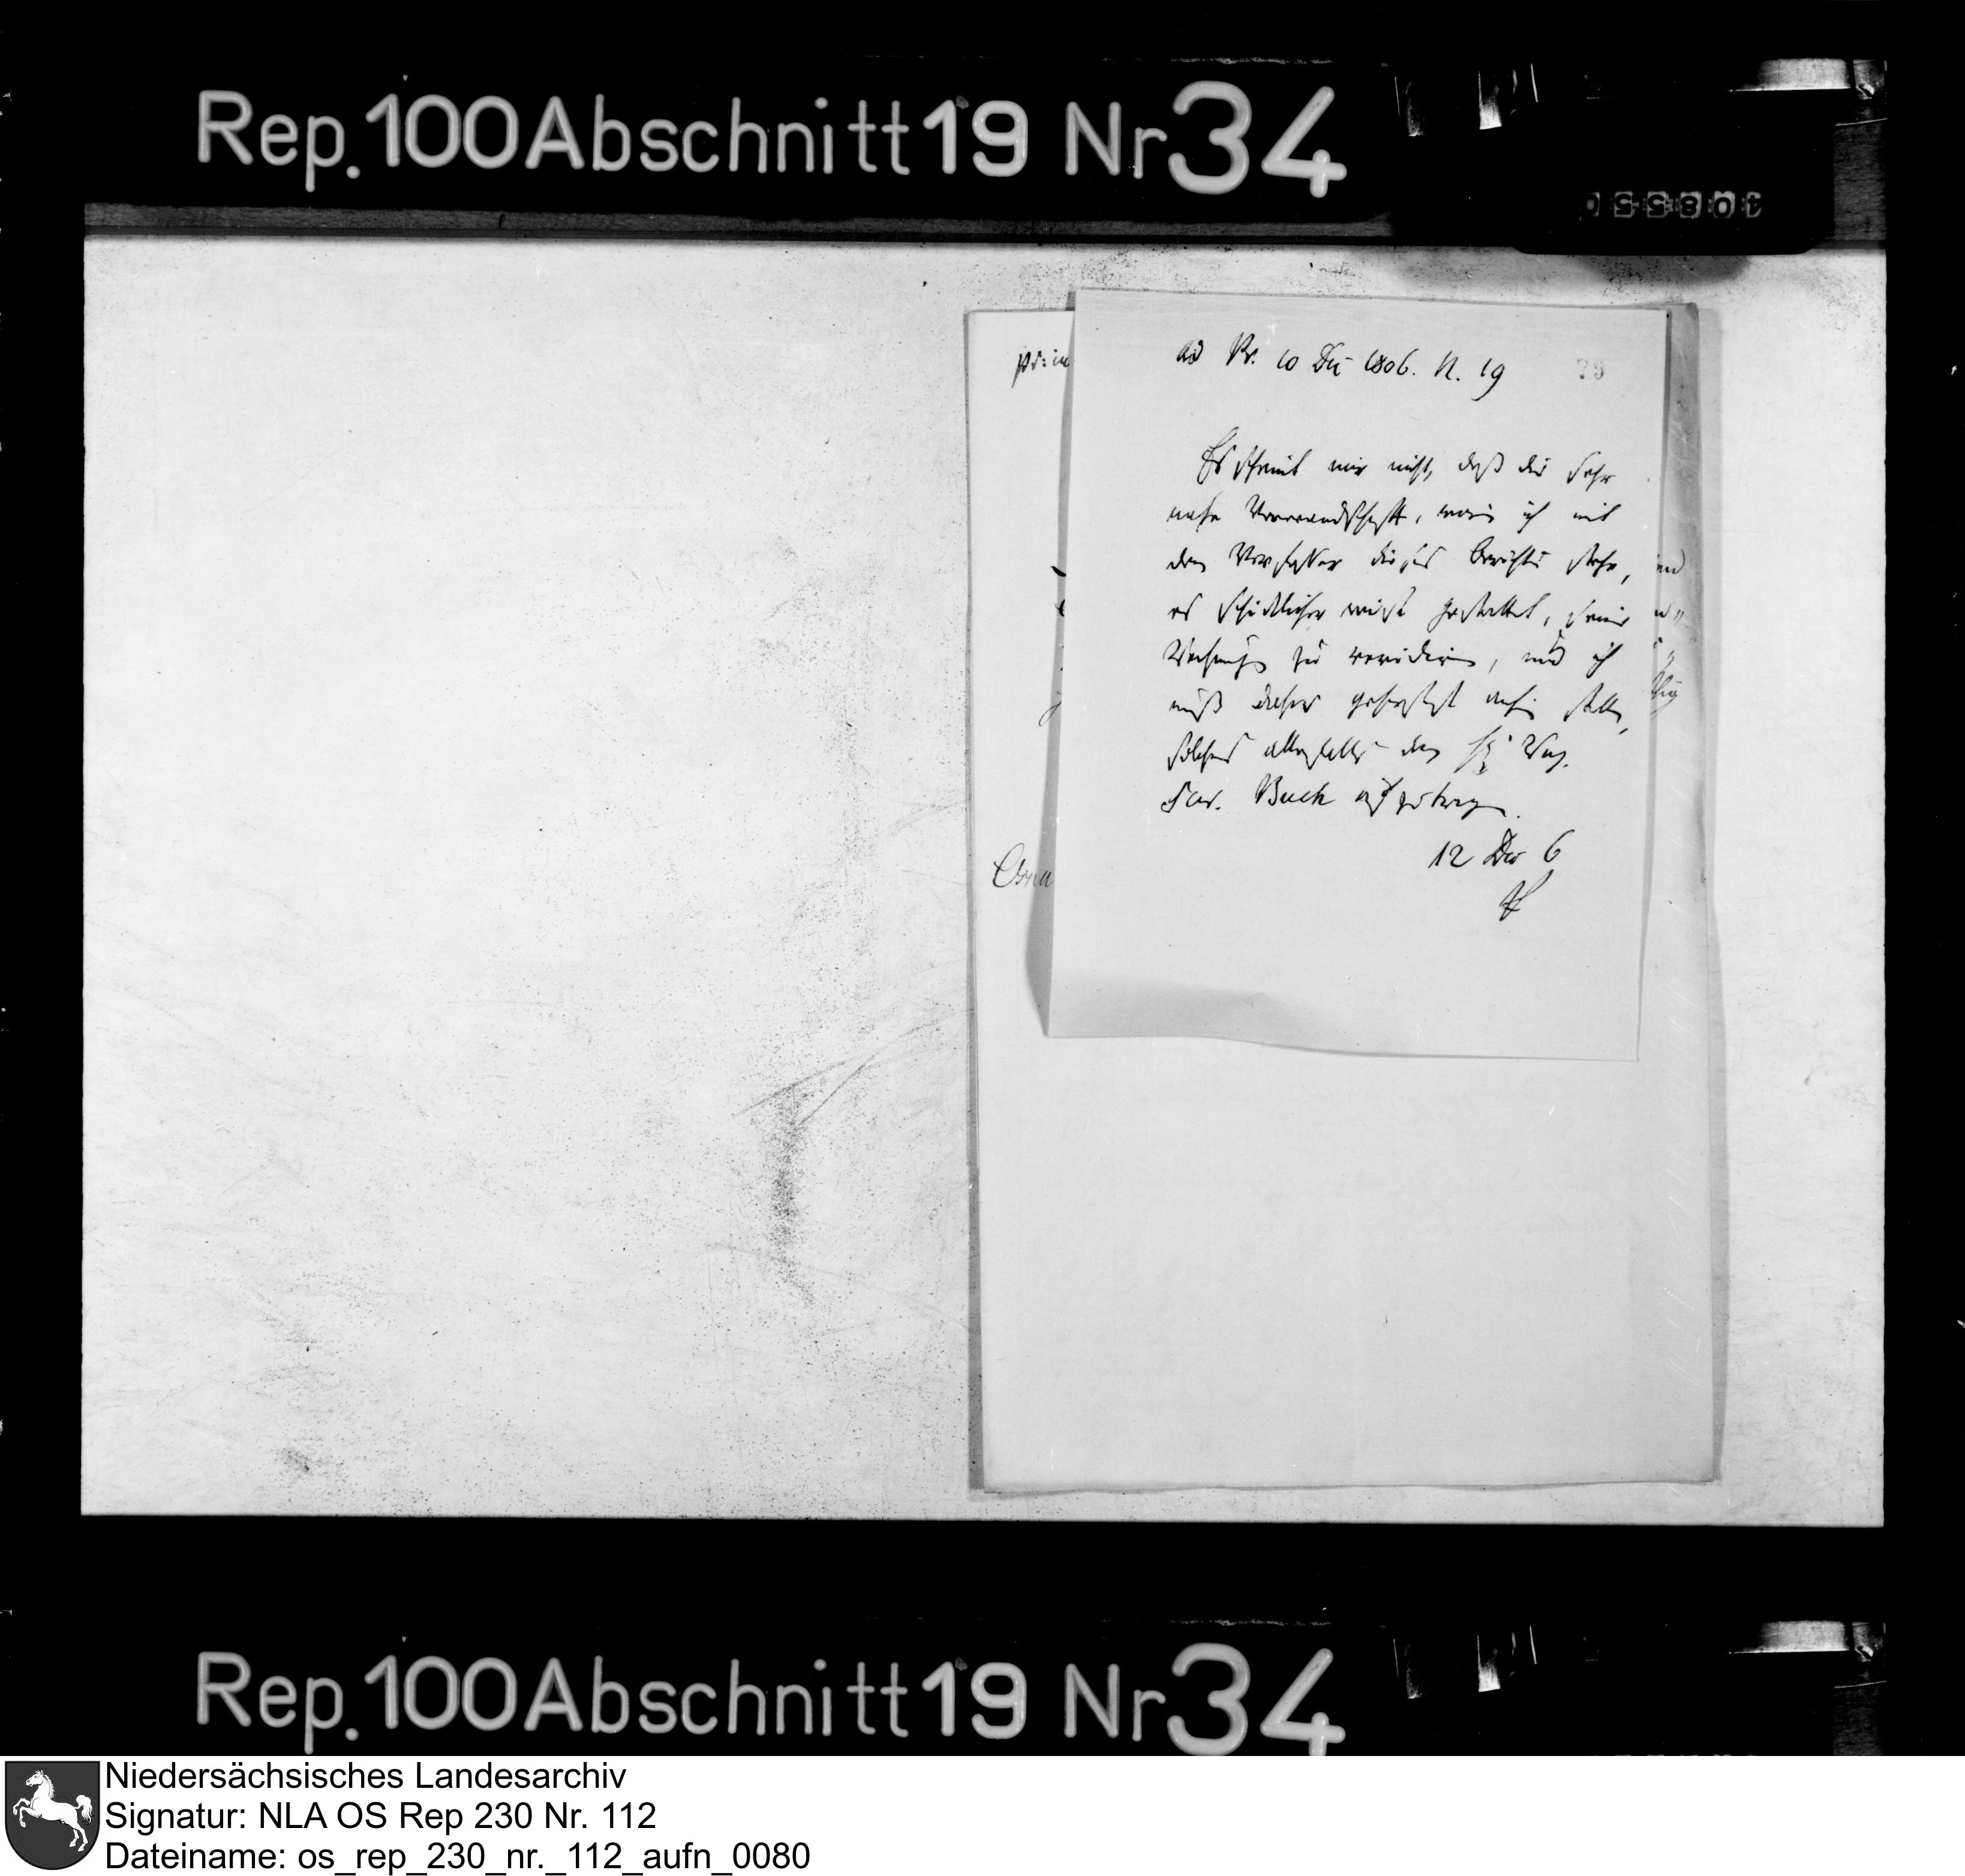 Rep. 100 Abschnitt 19 Nr 34
408550
pr: in
ad Pr. 10 Dec 1806. N. 19
79
Es scheint mir nicht, daß die sehr
nahe Verwandschafft, worin ich mit
dem Verfasser dieses Berichts stehe,
es schicklicher weise gestattet, seine
Rechnung zu revidiren, und ich
muß daher gehorsamst anheim stellen,
solches allenfalls dem H. Weg.
Scr. Buch aufzutragen.
12 Dec 6
Osna
Rep. 100 Abschnitt 19 Nr 34
Niedersächsisches Landesarchiv
Signatur: NLA OS Rep 230 Nr. 112
Dateiname: os_rep_230_nr._112_aufn_0080